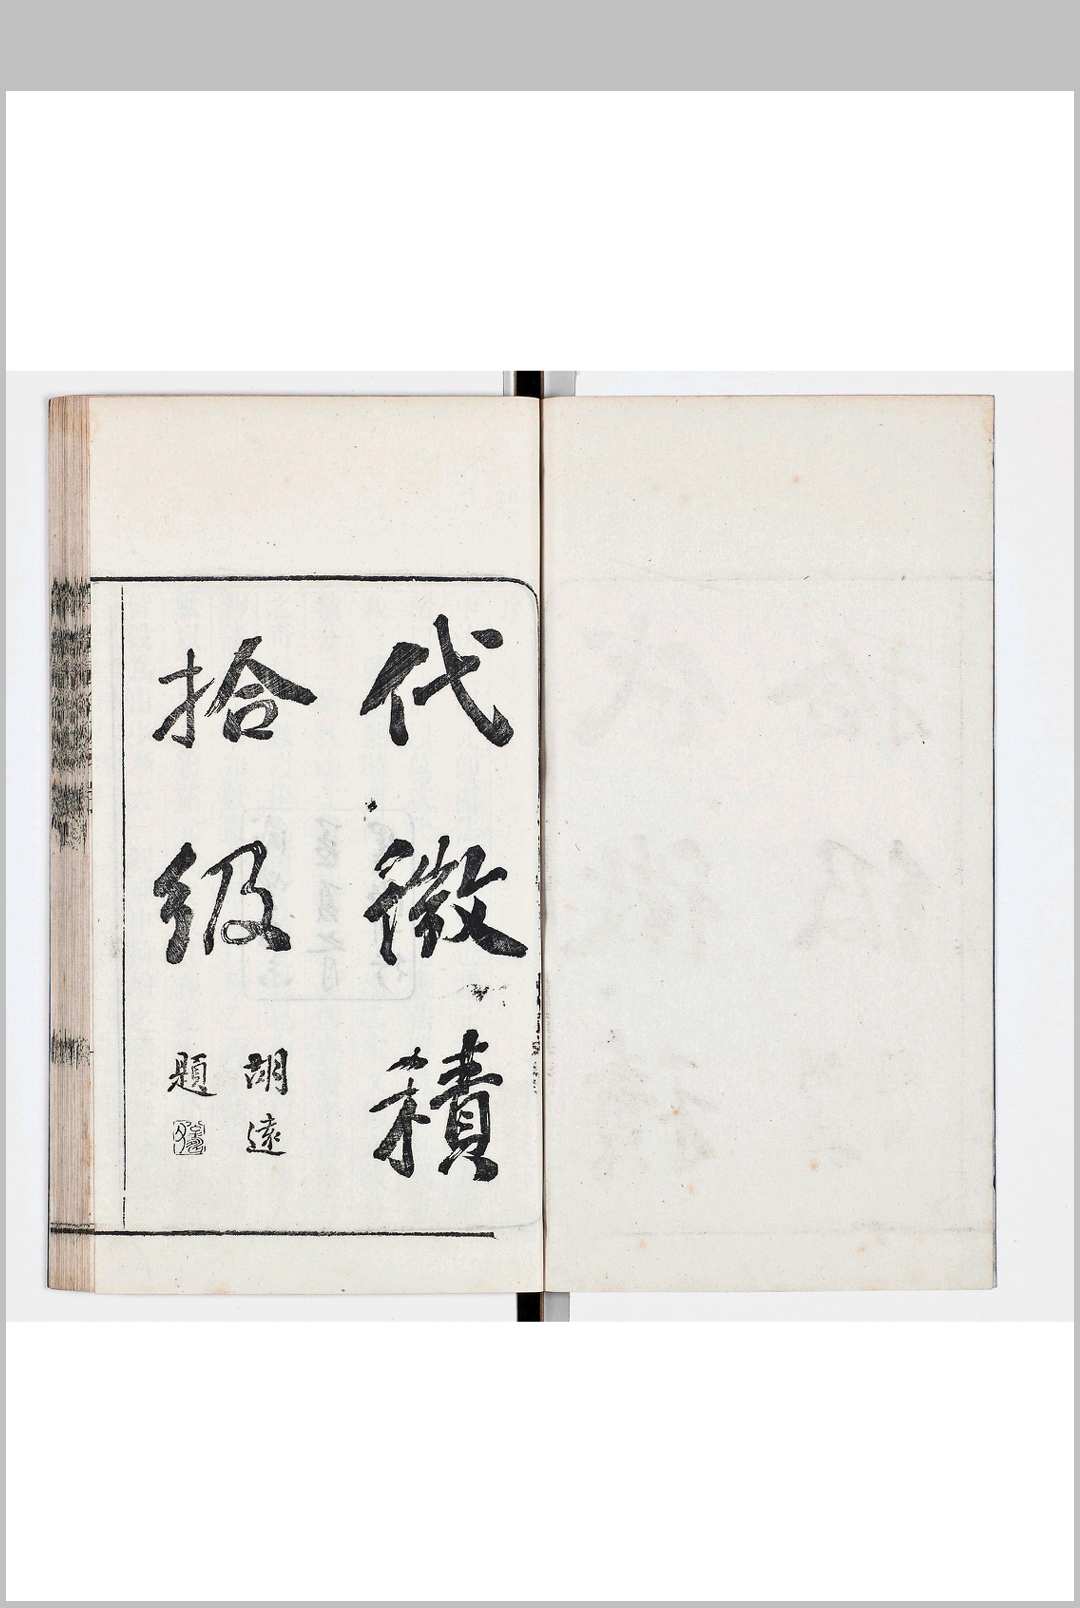 代微積
拾級
胡遠
題